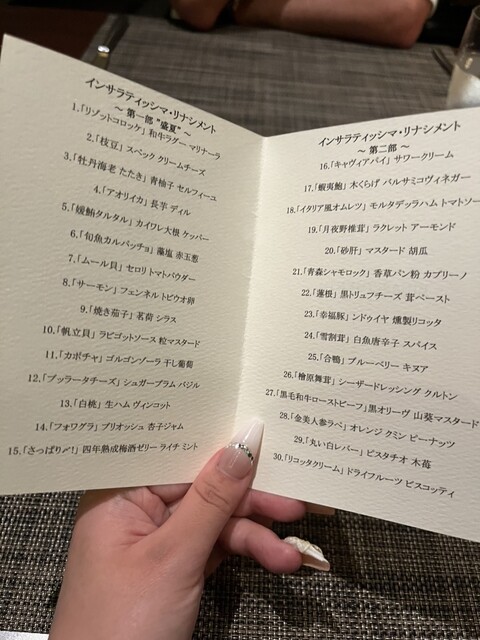 インサラティッシマ・リナシメント
～ 第一部 "盛夏" ～
1.「リゾットコロッケ」和牛ラグー マリナーラ
2.「枝豆」スペック クリームチーズ
3.「牡丹海老 たたき」青柚子 セルフィーユ
4.「アオリイカ」長芋 ディル
5.「媛鮪タルタル」カイワレ大根 ケッパー
6.「旬魚カルパッチョ」藻塩 赤玉葱
7.「ムール貝」セロリ トマトパウダー
8.「サーモン」フェンネル トビウオ卵
9.「焼き茄子」茗荷 シラス
10.「帆立貝」ラビゴットソース 粒マスタード
11.「カボチャ」ゴルゴンゾーラ 干し葡萄
12.「ブッラータチーズ」シュガープラム バジル
13.「白桃」生ハム ヴィンコット
14.「フォワグラ」ブリオッシュ 杏子ジャム
15.「さっぱり〆!」四年熟成梅酒ゼリー ライチ ミント
インサラティッシマ・リナシメント
～ 第二部 ～
16.「キャヴィアパイ」サワークリーム
17.「蝦夷鮑」木くらげ バルサミコヴィネガー
18.「イタリア風オムレツ」モルタデッラハム トマトソー
19.「月夜野椎茸」ラクレット アーモンド
20.「砂肝」マスタード 胡瓜
21.「青森シャモロック」香草パン粉 カプリーノ
22.「蓮根」黒トリュフチーズ 茸ペースト
23.「幸福豚」ンドゥイヤ 燻製リコッタ
24.「雪割茸」白魚唐辛子 スパイス
25.「合鴨」ブルーベリー キヌア
26.「檜原舞茸」シーザードレッシング クルトン
27.「黒毛和牛ローストビーフ」黒オリーヴ 山葵マスタード
28.「金美人参ラペ」オレンジ クミン ピーナッツ
29.「丸い白レバー」ピスタチオ 木苺
30.「リコッタクリーム」ドライフルーツ ビスコッティ